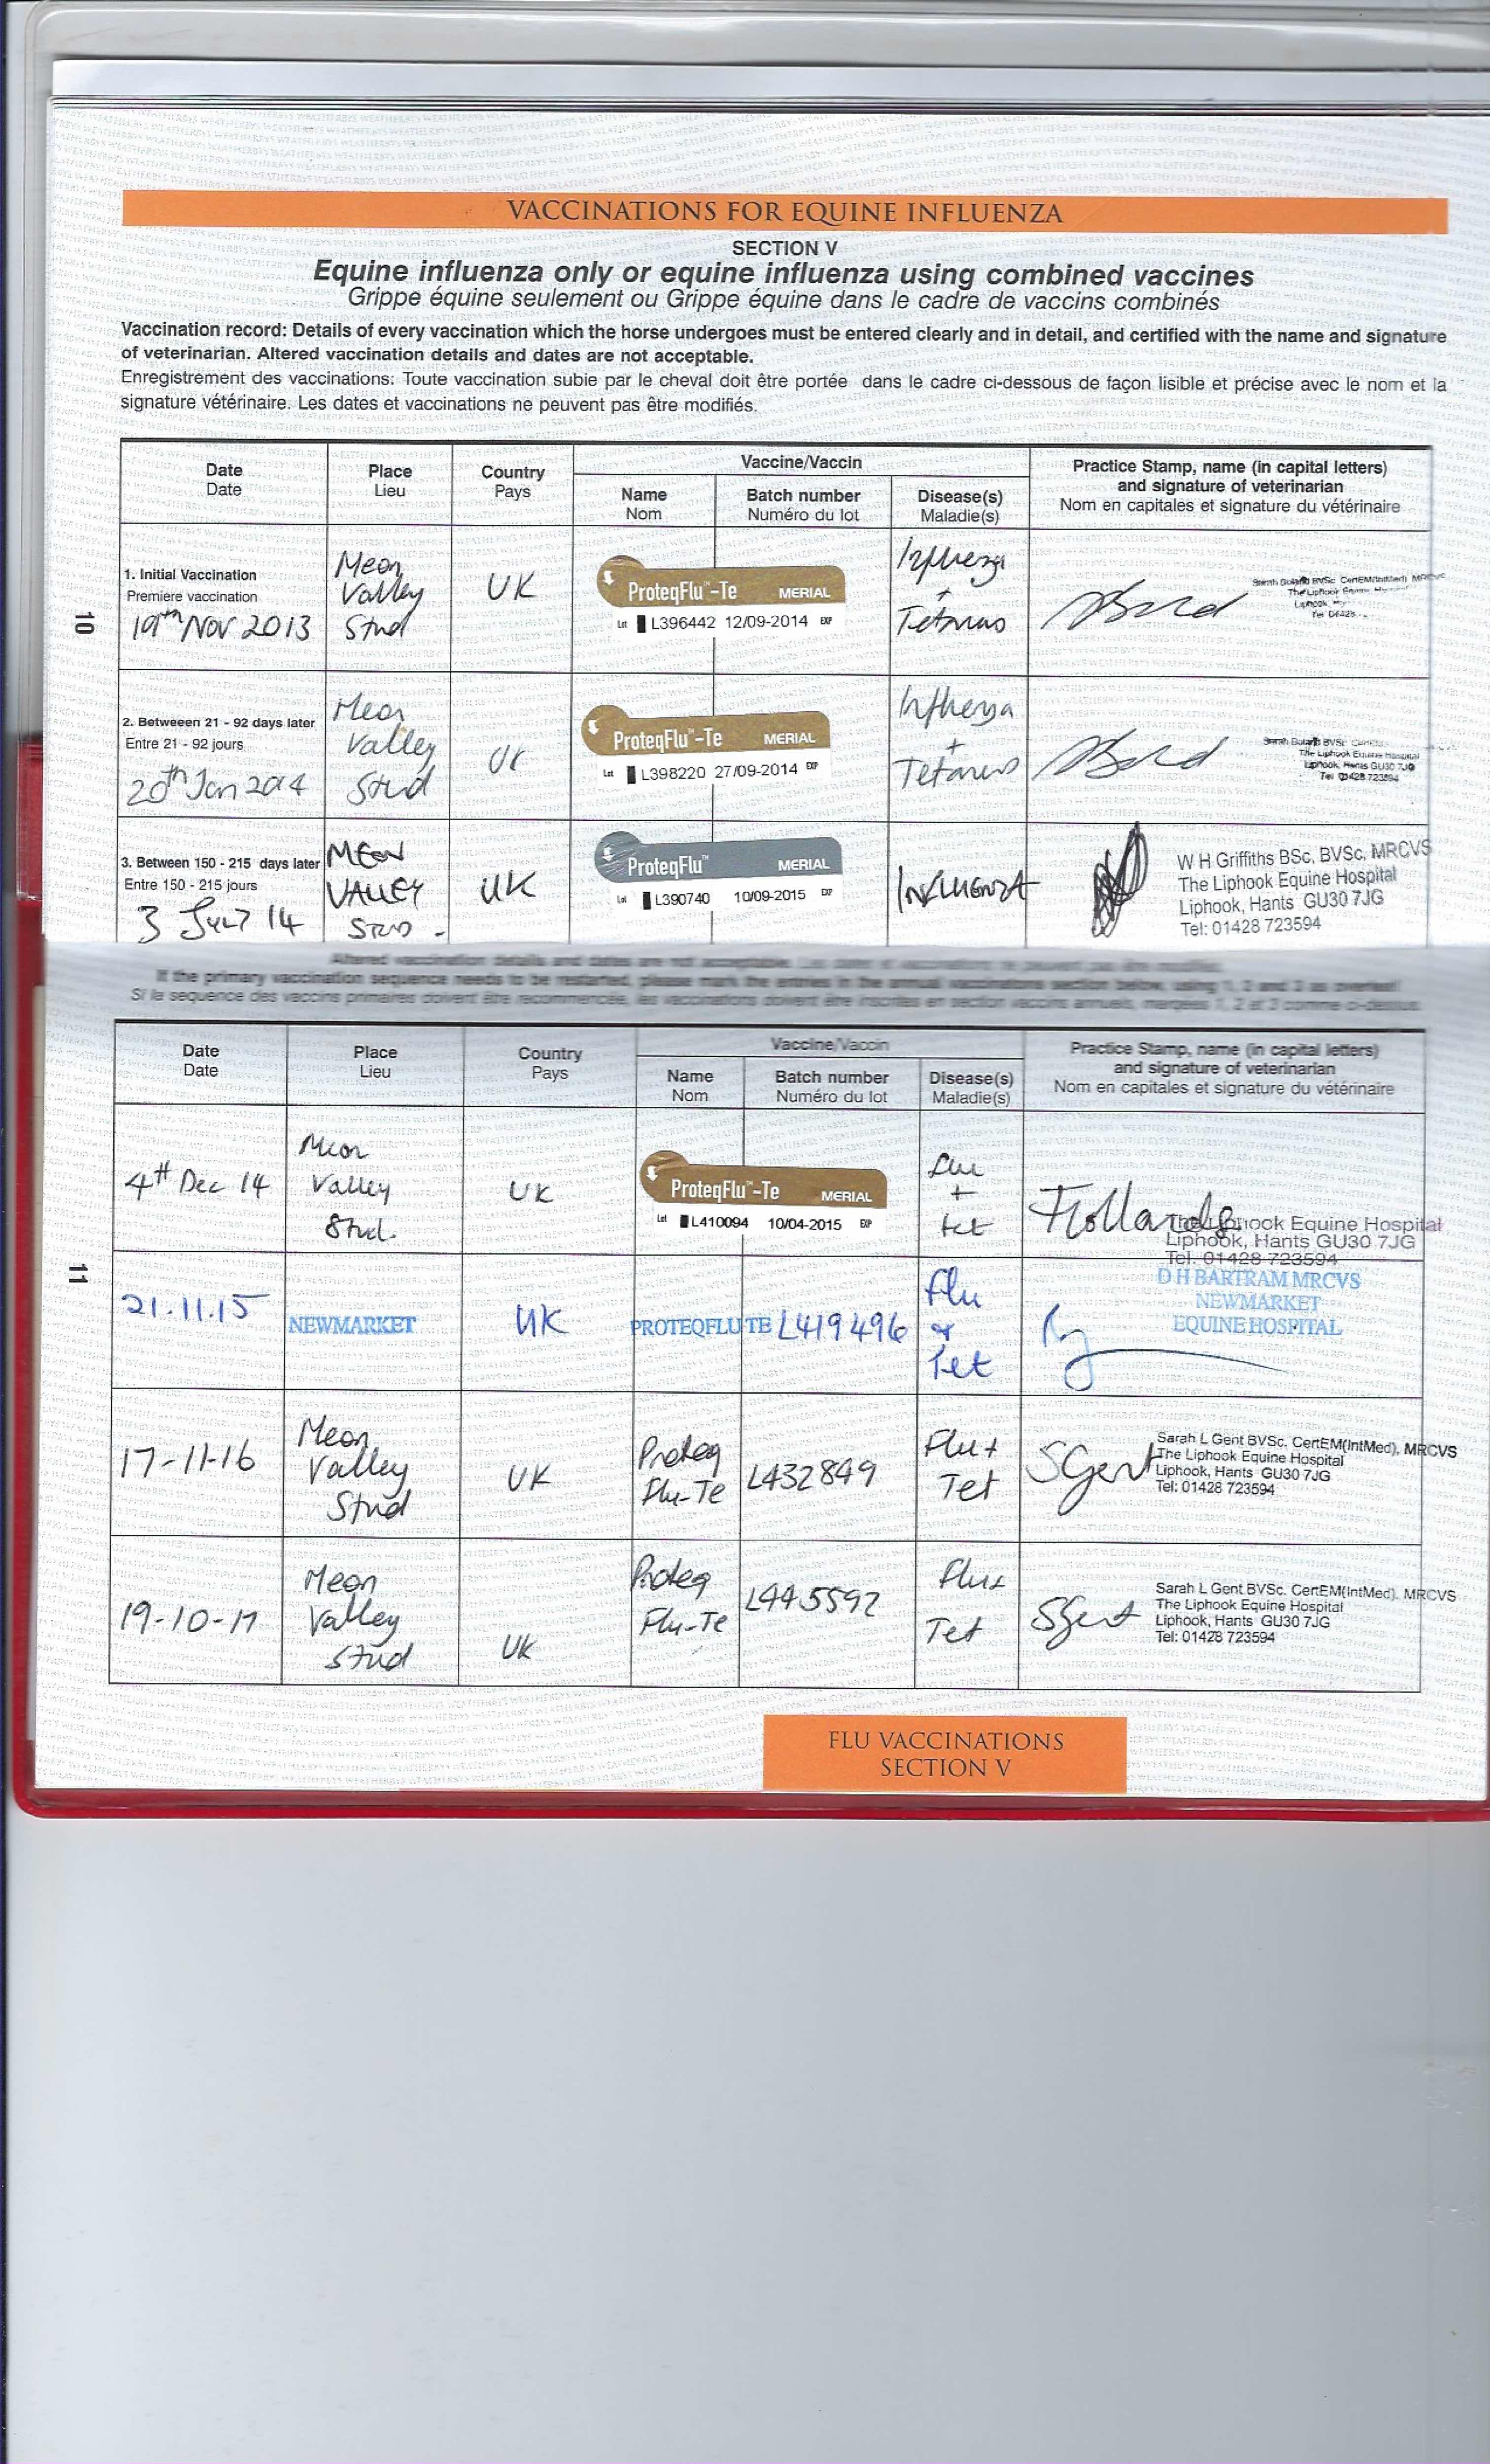 VACCINATIONS FOR EQUINE INFLUENZA
SECTION V
Equine influenza only or equine influenza using combined vaccines
Grippe équine seulement ou Grippe équine dans le cadre de vaccins combinés
Vaccination record: Details of every vaccination which the horse undergoes must be entered clearly and in detail, and certified with the name and signature
of veterinarian. Altered vaccination details and dates are not acceptable.
Enregistrement des vaccinations: Toute vaccination subie par le cheval doit être portée dans le cadre ci-dessous de façon lisible et précise avec le nom et la
signature vétérinaire. Les dates et vaccinations ne peuvent pas être modifiés.
Date
Date
Place
Lieu
Country
Pays
Vaccine/Vaccin
Name
Nom
Batch number
Numéro du lot
Disease(s)
Maladie(s)
Practice Stamp, name (in capital letters)
and signature of veterinarian
Nom en capitales et signature du vétérinaire
10
1. Initial Vaccination
Premiere vaccination
19th Nov 2013
Meon
Valley
Stud
UK
ProteqFlu™-Te MERIAL
Lot L396442 12/09-2014 EXP
Influenza
+
Tetanus
2. Betweeen 21 - 92 days later
Entre 21 - 92 jours
20th Jan 2014
Meon
Valley
Stud
UK
ProteqFlu™-Te MERIAL
Lot L398220 27/09-2014 EXP
Influenza
+
Tetanus
The Liphook Equine Hospital
Liphook, Hants GU30 7JG
Tel 01428 723594
3. Between 150 - 215 days later
Entre 150 - 215 jours
3 JULY 14
MEON
VALLEY
STUD -
UK
ProteqFlu™ MERIAL
Lot L390740 10/09-2015 EXP
INFLUENZA
W H Griffiths BSc, BVSc, MRCVS
The Liphook Equine Hospital
Liphook, Hants GU30 7JG
Tel: 01428 723594
Altered vaccination details and dates are not acceptable. Les dates et vaccinations ne peuvent pas être modifiés.
If the primary vaccination sequence needs to be restarted, please mark the entries in the annual vaccinations section below, using 1, 2 and 3 as overleaf
Si la sequence des vaccins primaires doivent être recommencée, les vaccinations doivent être inscrites en section vaccins annuels, margees 1, 2 et 3 comme ci-dessus
Date
Date
Place
Lieu
Country
Pays
Vaccine/Vaccin
Name
Nom
Batch number
Numéro du lot
Disease(s)
Maladie(s)
Practice Stamp, name (in capital letters)
and signature of veterinarian
Nom en capitales et signature du vétérinaire
11
4th Dec 14
Meon
Valley
Stud.
UK
ProteqFlu™-Te MERIAL
Lot L410094 10/04-2015 EXP
Flu
+
tet
The Liphook Equine Hospital
Liphook, Hants GU30 7JG
Tel. 01428 723594
21.11.15
NEWMARKET
UK
PROTEQFLU TE
L419496
Flu
&
Tet
D H BARTRAM MRCVS
NEWMARKET
EQUINE HOSPITAL
17-11-16
Meon
Valley
Stud
UK
Proteq
Flu-Te
L432849
Flu +
Tet
SGent
Sarah L Gent BVSc. CertEM(IntMed), MRCVS
The Liphook Equine Hospital
Liphook, Hants GU30 7JG
Tel: 01428 723594
19-10-17
Meon
Valley
Stud
UK
Proteq
Flu-Te
L445592
Flu +
Tet
SGent
Sarah L Gent BVSc. CertEM(IntMed), MRCVS
The Liphook Equine Hospital
Liphook, Hants GU30 7JG
Tel: 01428 723594
FLU VACCINATIONS
SECTION V